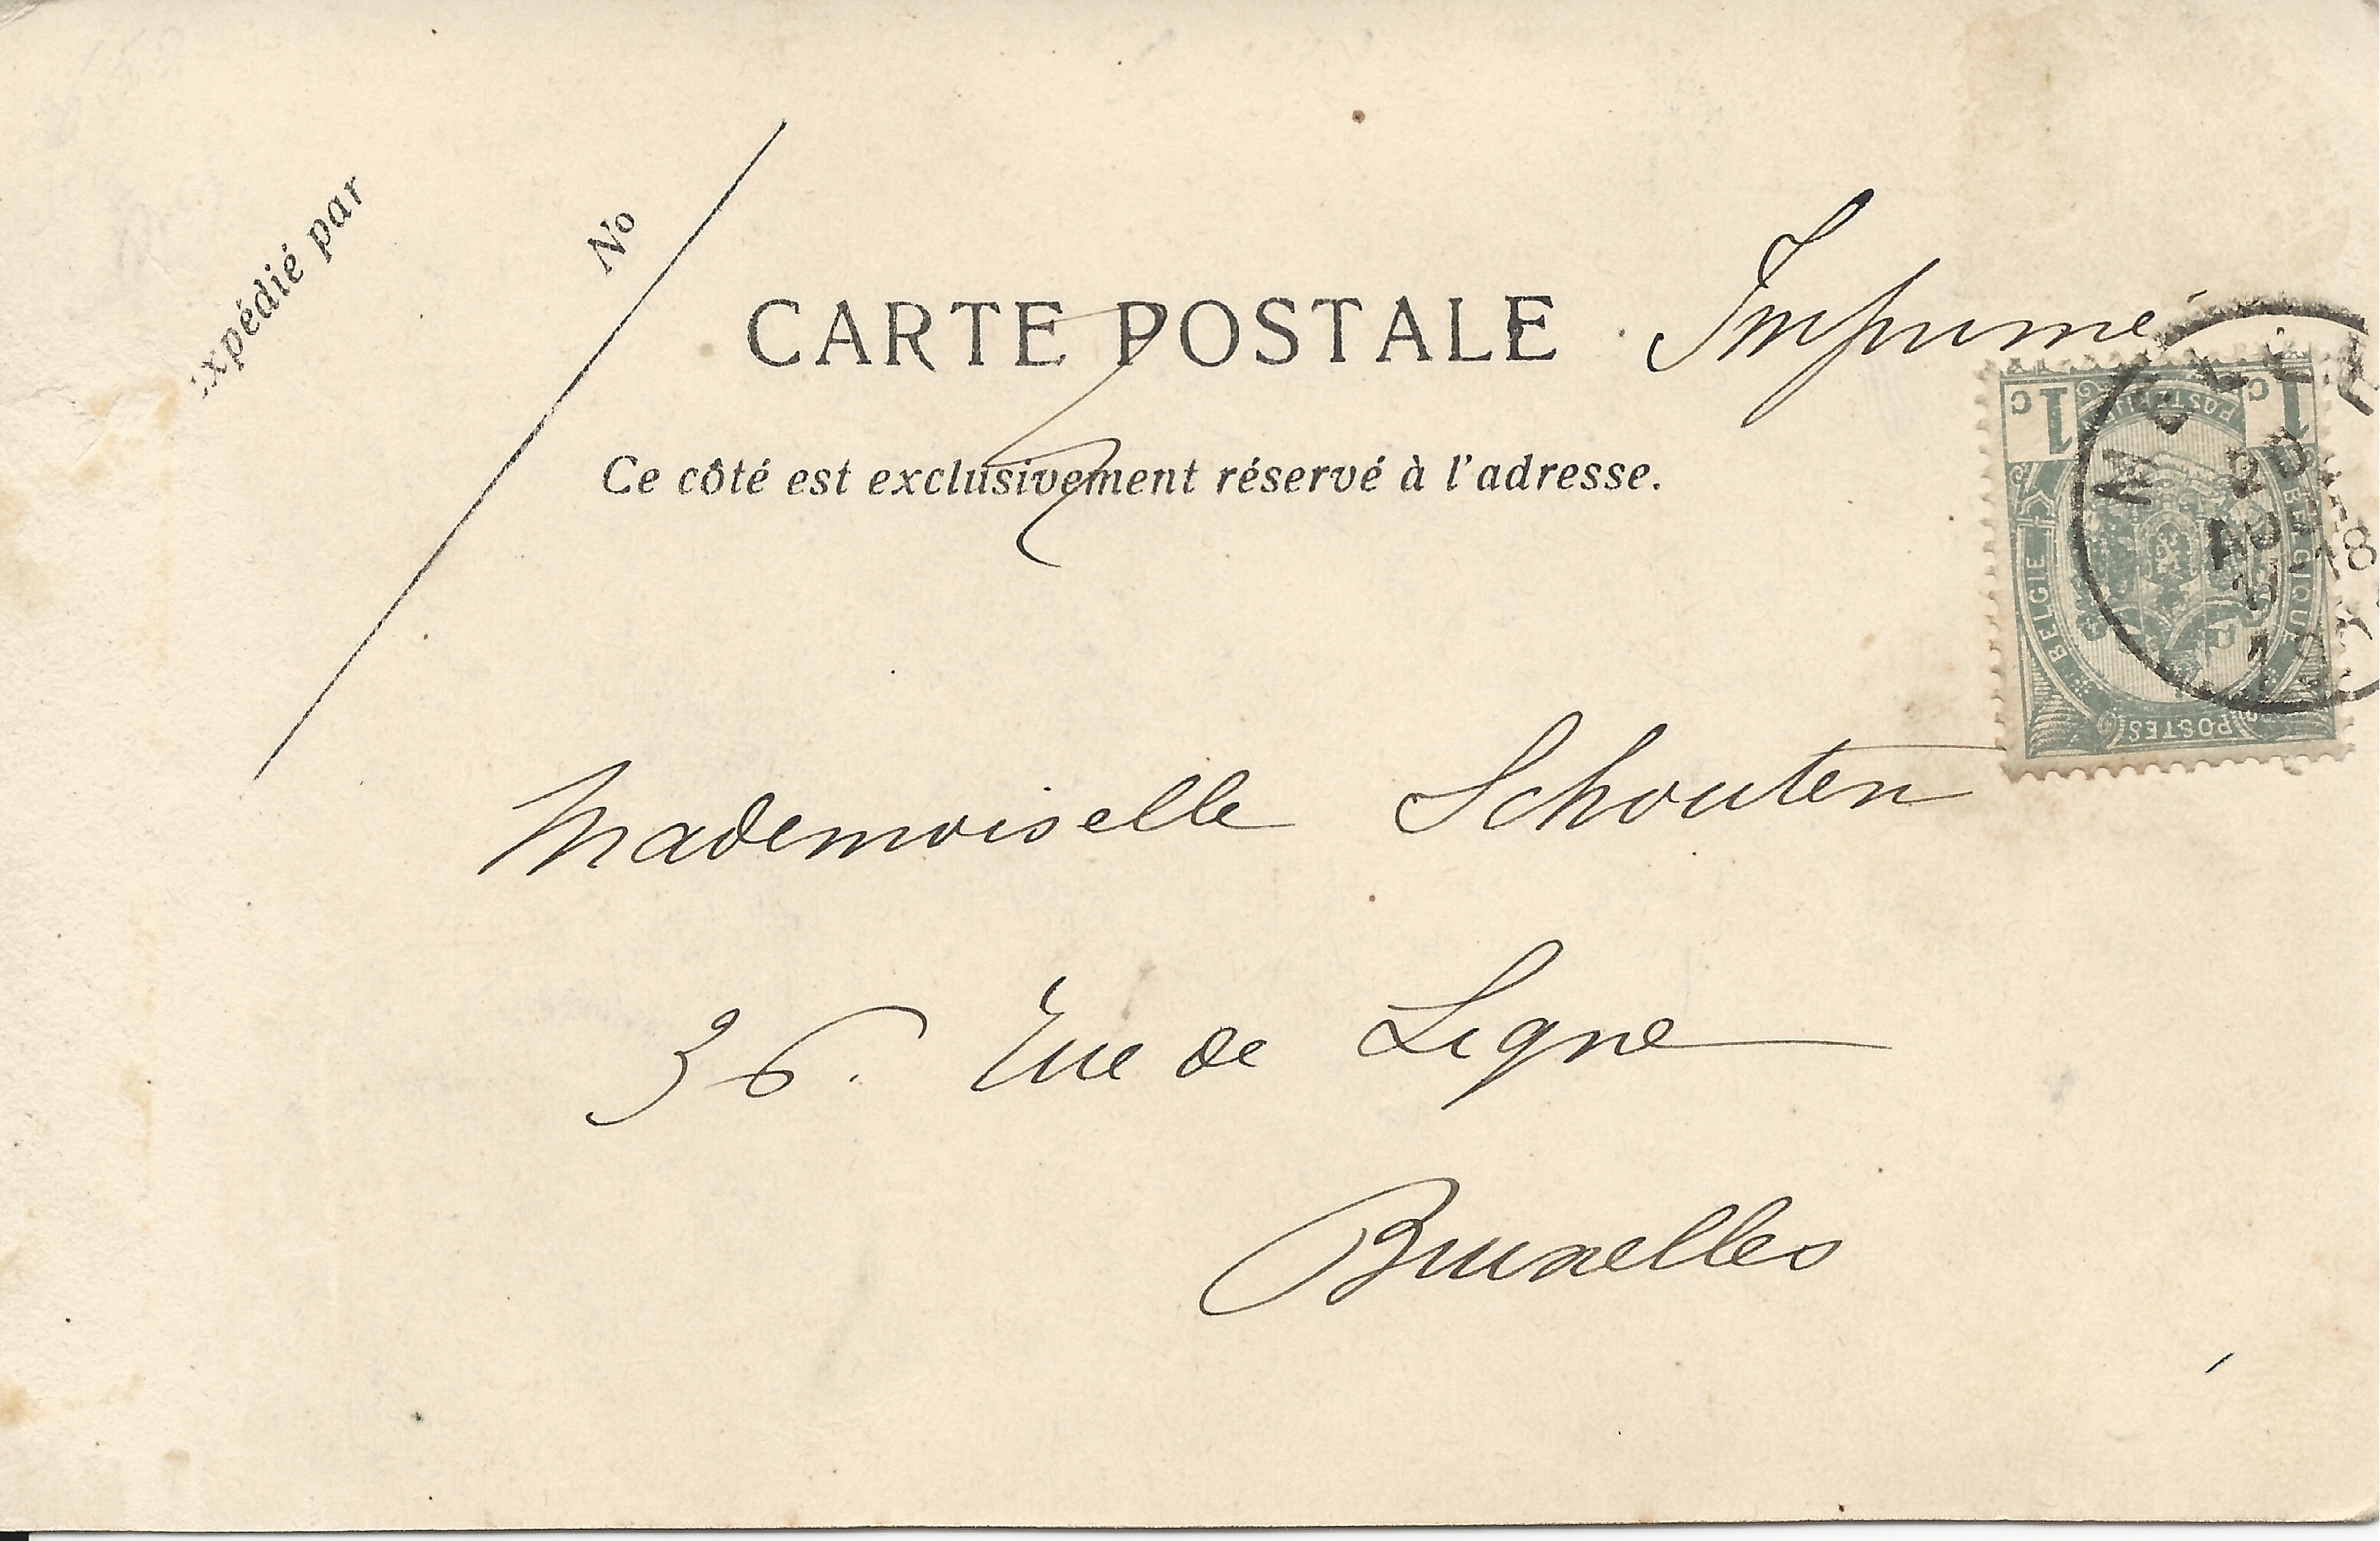 xpédié par
No
CARTE POSTALE
Imprimé
Ce côté est exclusivement réservé à l'adresse.
1c 1c
BELGIE BELGIQUE
POSTES
Mademoiselle Schouten
36. Rue de Ligne
Bruxelles